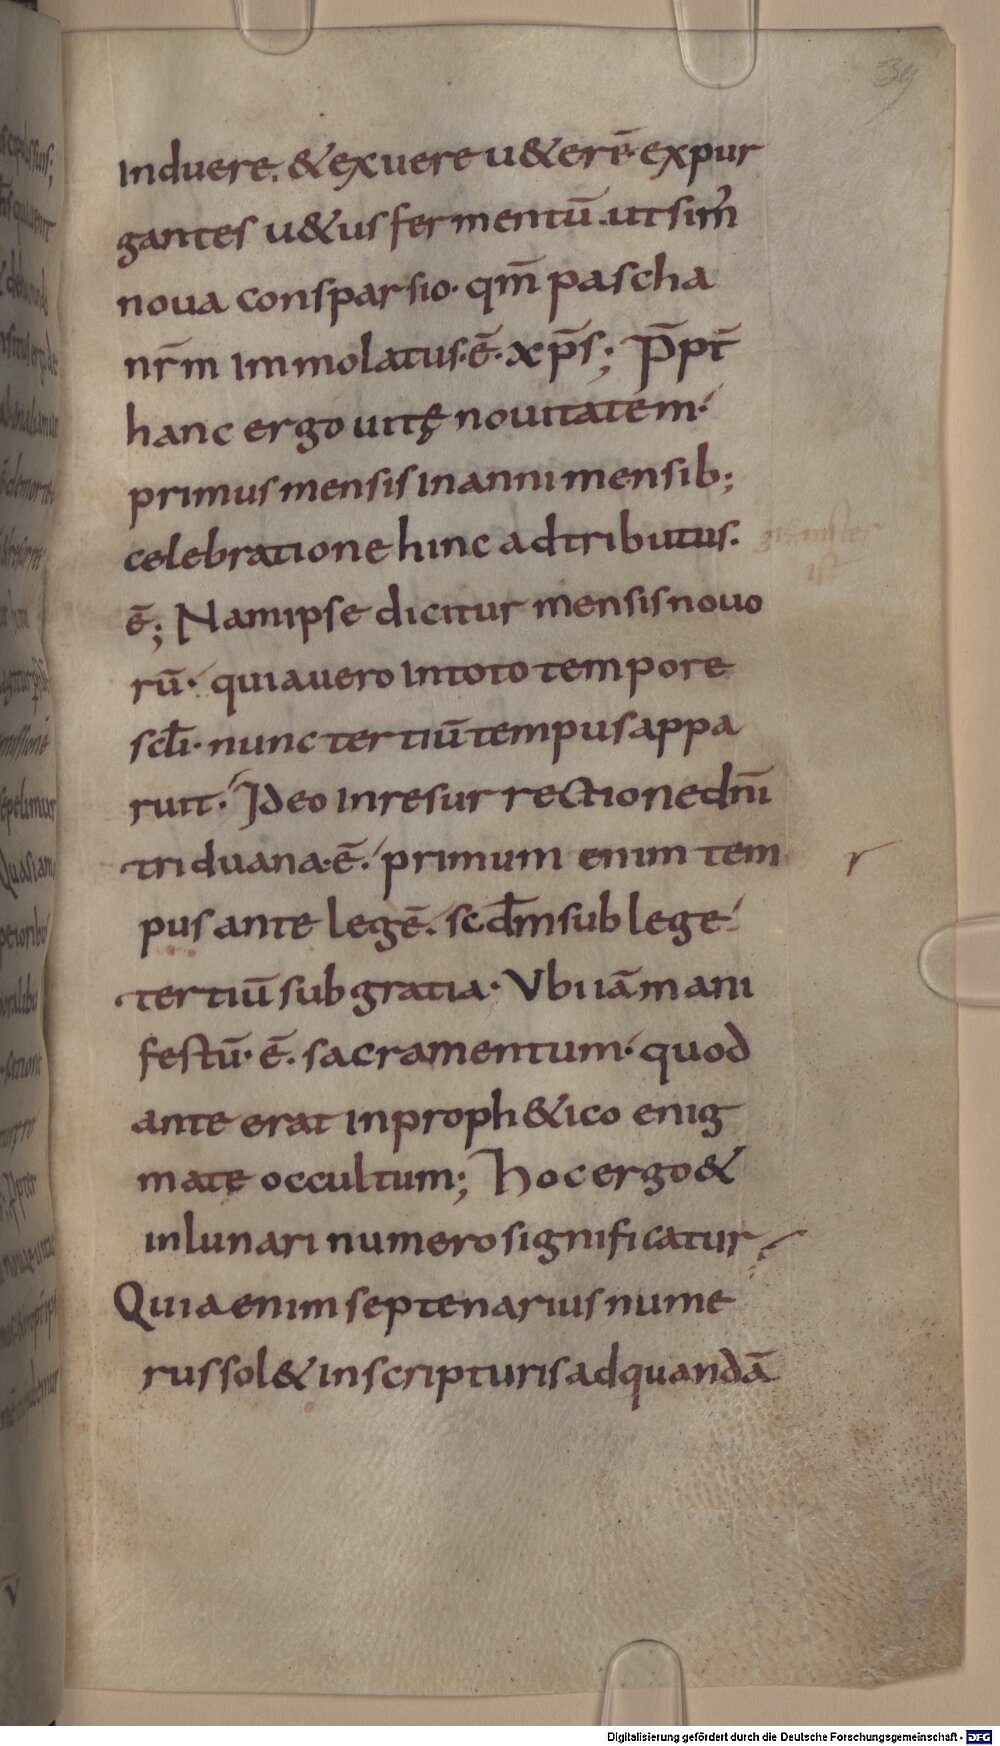 39
induere. & exuere u&erē expur
gantes u&us fermentū. ut sim̄
noua consparsio. qm̄ pascha
nr̄m immolatus. ē. xp̄s; P̄pt̄
hanc ergo uitę nouitatem.
primus mensis in anni mensib;
celebratione hinc adtributus.
ē; Nam ipse dicitur mensis nouo
rū. quia uero in toto tempore
scl̄i. nunc tertiū tempus appa
ruit. Ideo in resurrectione dn̄i
triduana. ē. primum enim tem
pus ante legē. scd̄m sub lege
tertiū sub gratia. Vbi iā mani
festū. ē. sacramentum. quod
ante erat in proph&ico enig
mate occultum; Hoc ergo &
in lunari numero significatur
Quia enim septenarius nume
rus sol& in scripturis ad quandā
r
Digitalisierung gefördert durch die Deutsche Forschungsgemeinschaft - DFG